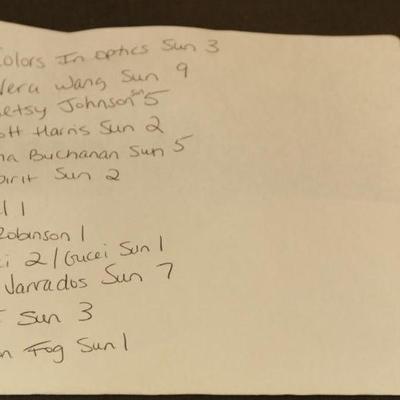 Colors In Optics Sun 3
Vera Wang Sun 9
etsy Johnson Sun 5
ott Harris Sun 2
na Buchanan Sun 5
pirit Sun 2
1
Robinson 1
ci 2/Gucci Sun 1
Jarrados Sun 7
Sun 3
on Fog Sun 1